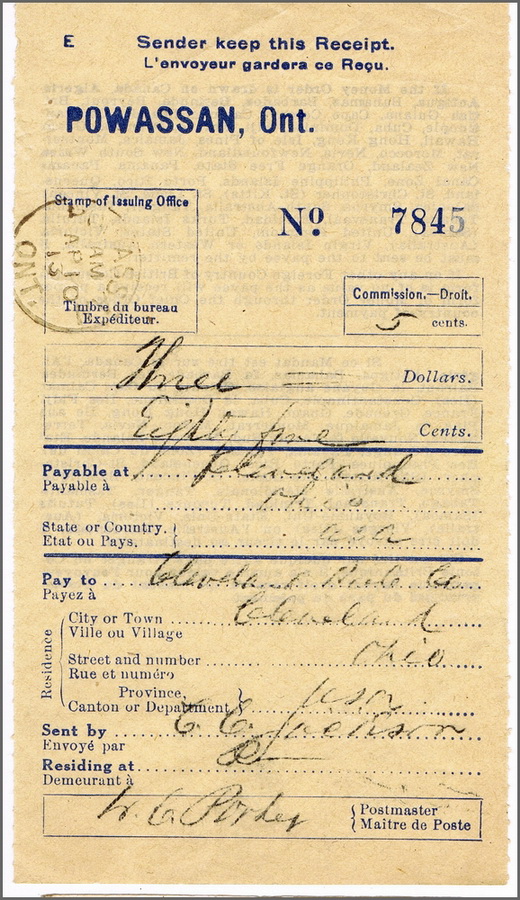 E Sender keep this Receipt.
L'envoyeur gardera ce Reçu.
POWASSAN, Ont.
Stamp of Issuing Office
ASSAN
AM
AP 10
13
ONT.
Timbre du bureau
Expéditeur.
Nº 7845
Commission.—Droit.
5 cents.
Three Dollars.
Eighty five Cents.
Payable at Cleveland
Payable à Ohio
State or Country.
Etat ou Pays. usa
Pay to Cleveland Co
Payez à
Residence
City or Town Cleveland
Ville ou Village
Street and number Ohio
Rue et numéro
Province
Canton or Department
Sent by C. C. Jackson
Envoyé par
Residing at
Demeurant à
W. C. Porter
Postmaster
Maître de Poste